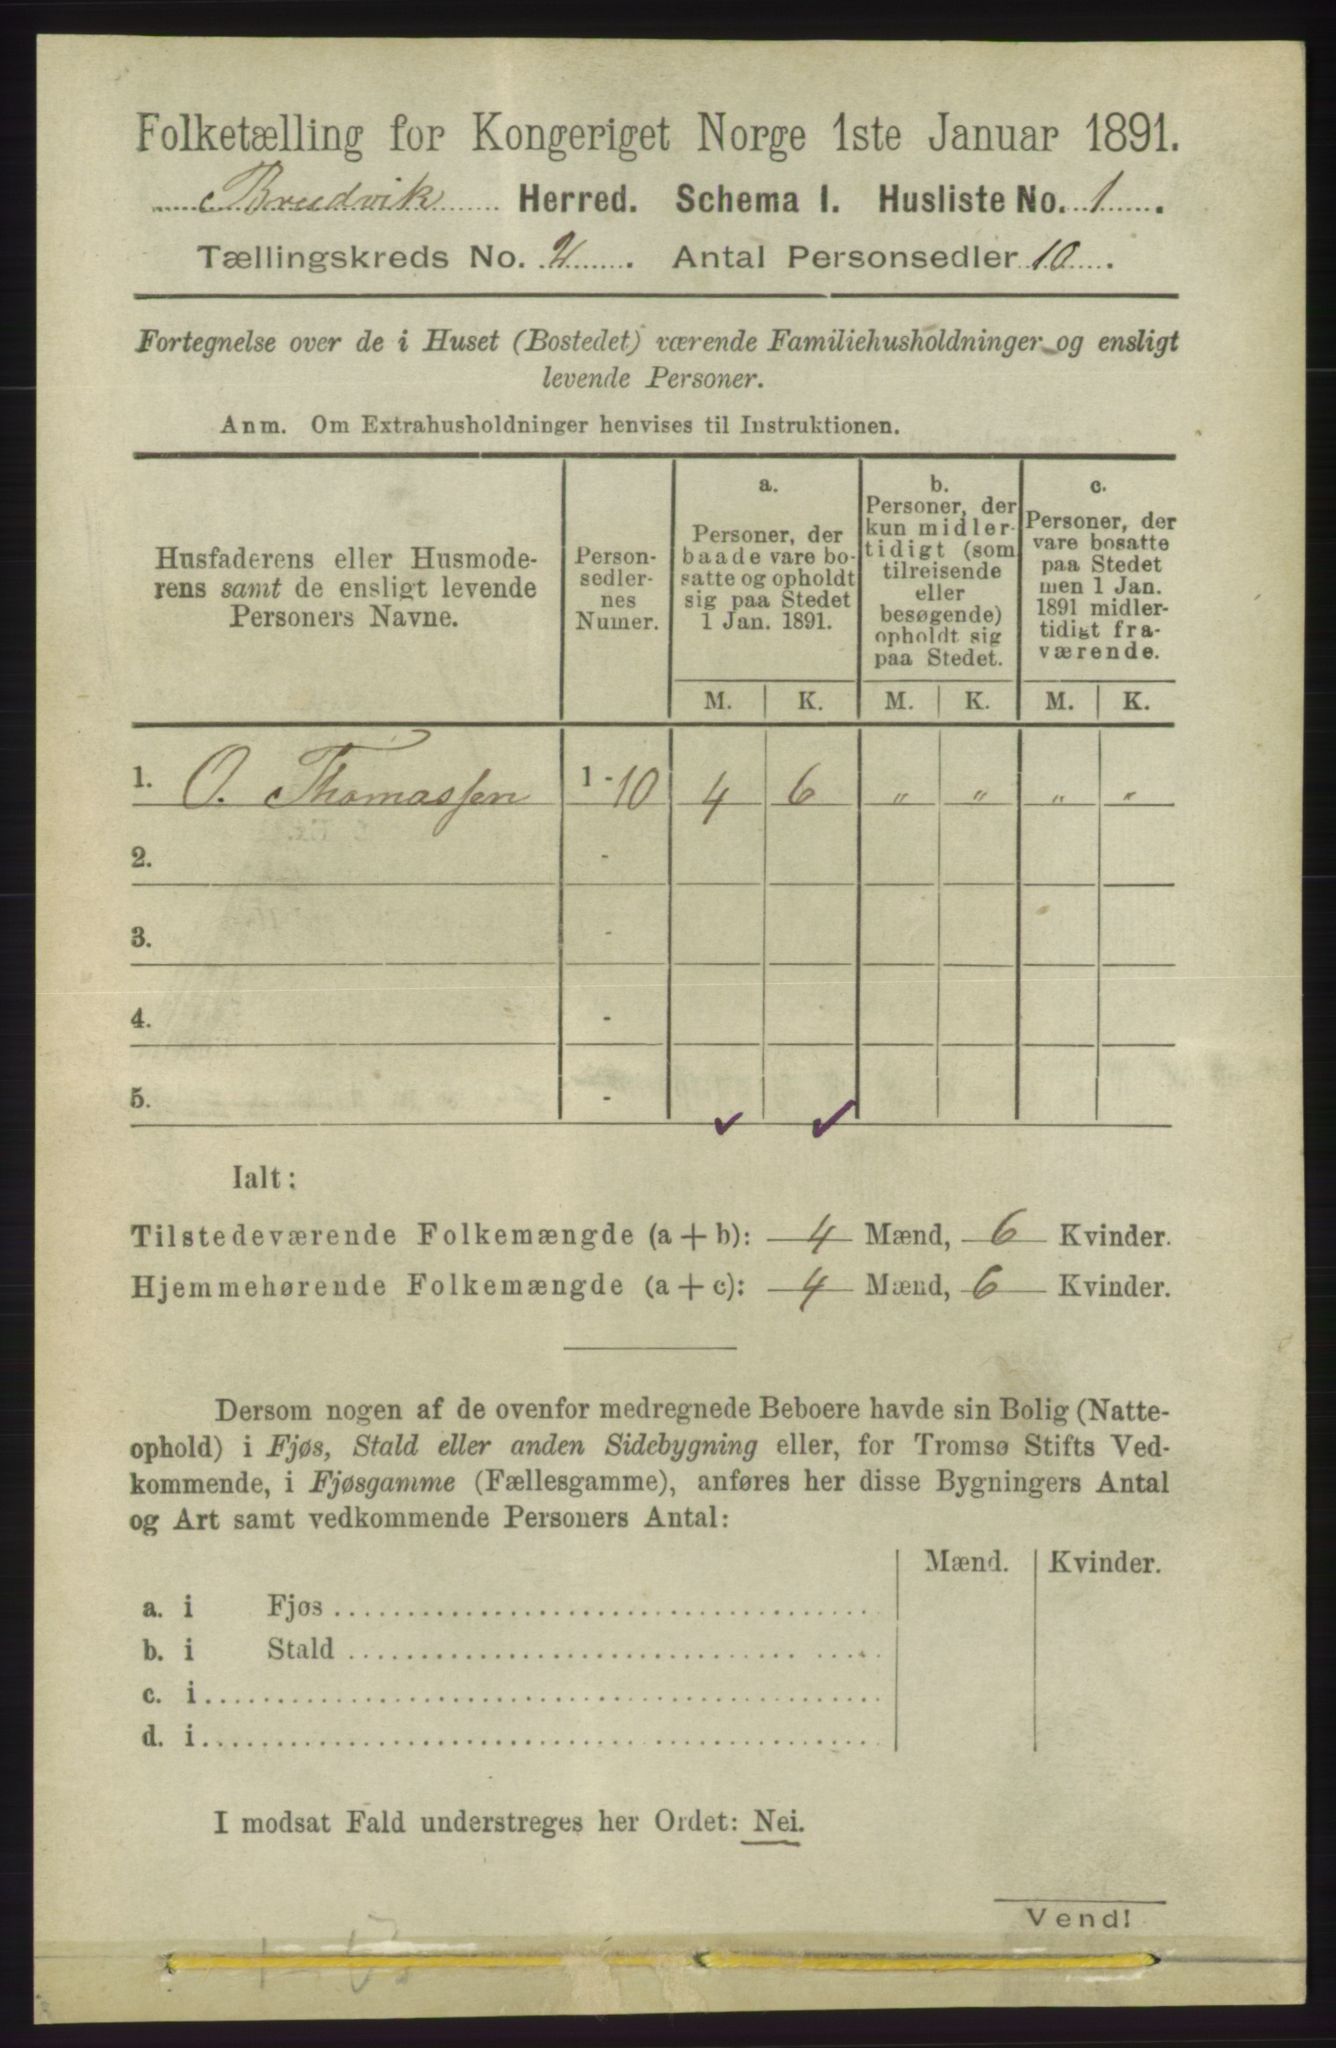 Folketælling for Kongeriget Norge 1ste Januar 1891.
Brudvik Herred. Schema I. Husliste No. 1.
Tællingskreds No. 2. Antal Personsedler 10.
Fortegnelse over de i Huset (Bostedet) værende Familiehusholdninger og ensligt
levende Personer.
Anm. Om Extrahusholdninger henvises til Instruktionen.
Husfaderens eller Husmode-
rens samt de ensligt levende
Personers Navne.
Person-
sedler-
nes
Numer.
a.
Personer, der
baade vare bo-
satte og opholdt
sig paa Stedet
1 Jan. 1891.
b.
Personer, der
kun midler-
tidigt (som
tilreisende
eller
besøgende)
opholdt sig
paa Stedet.
c.
Personer, der
vare bosatte
paa Stedet
men 1 Jan.
1891 midler-
tidigt fra-
værende.
M. K. M. K. M. K.
1. O. Thomassen 1 - 10 4 6 " " " "
2. -
3. -
4. -
5. -
Ialt:
Tilstedeværende Folkemængde (a + b): 4 Mænd, 6 Kvinder.
Hjemmehørende Folkemængde (a + c): 4 Mænd, 6 Kvinder.
Dersom nogen af de ovenfor medregnede Beboere havde sin Bolig (Natte-
ophold) i Fjøs, Stald eller anden Sidebygning eller, for Tromsø Stifts Ved-
kommende, i Fjøsgamme (Fællesgamme), anføres her disse Bygningers Antal
og Art samt vedkommende Personers Antal:
Mænd. Kvinder.
a. i Fjøs
b. i Stald
c. i
d. i
I modsat Fald understreges her Ordet: Nei.
Vend!